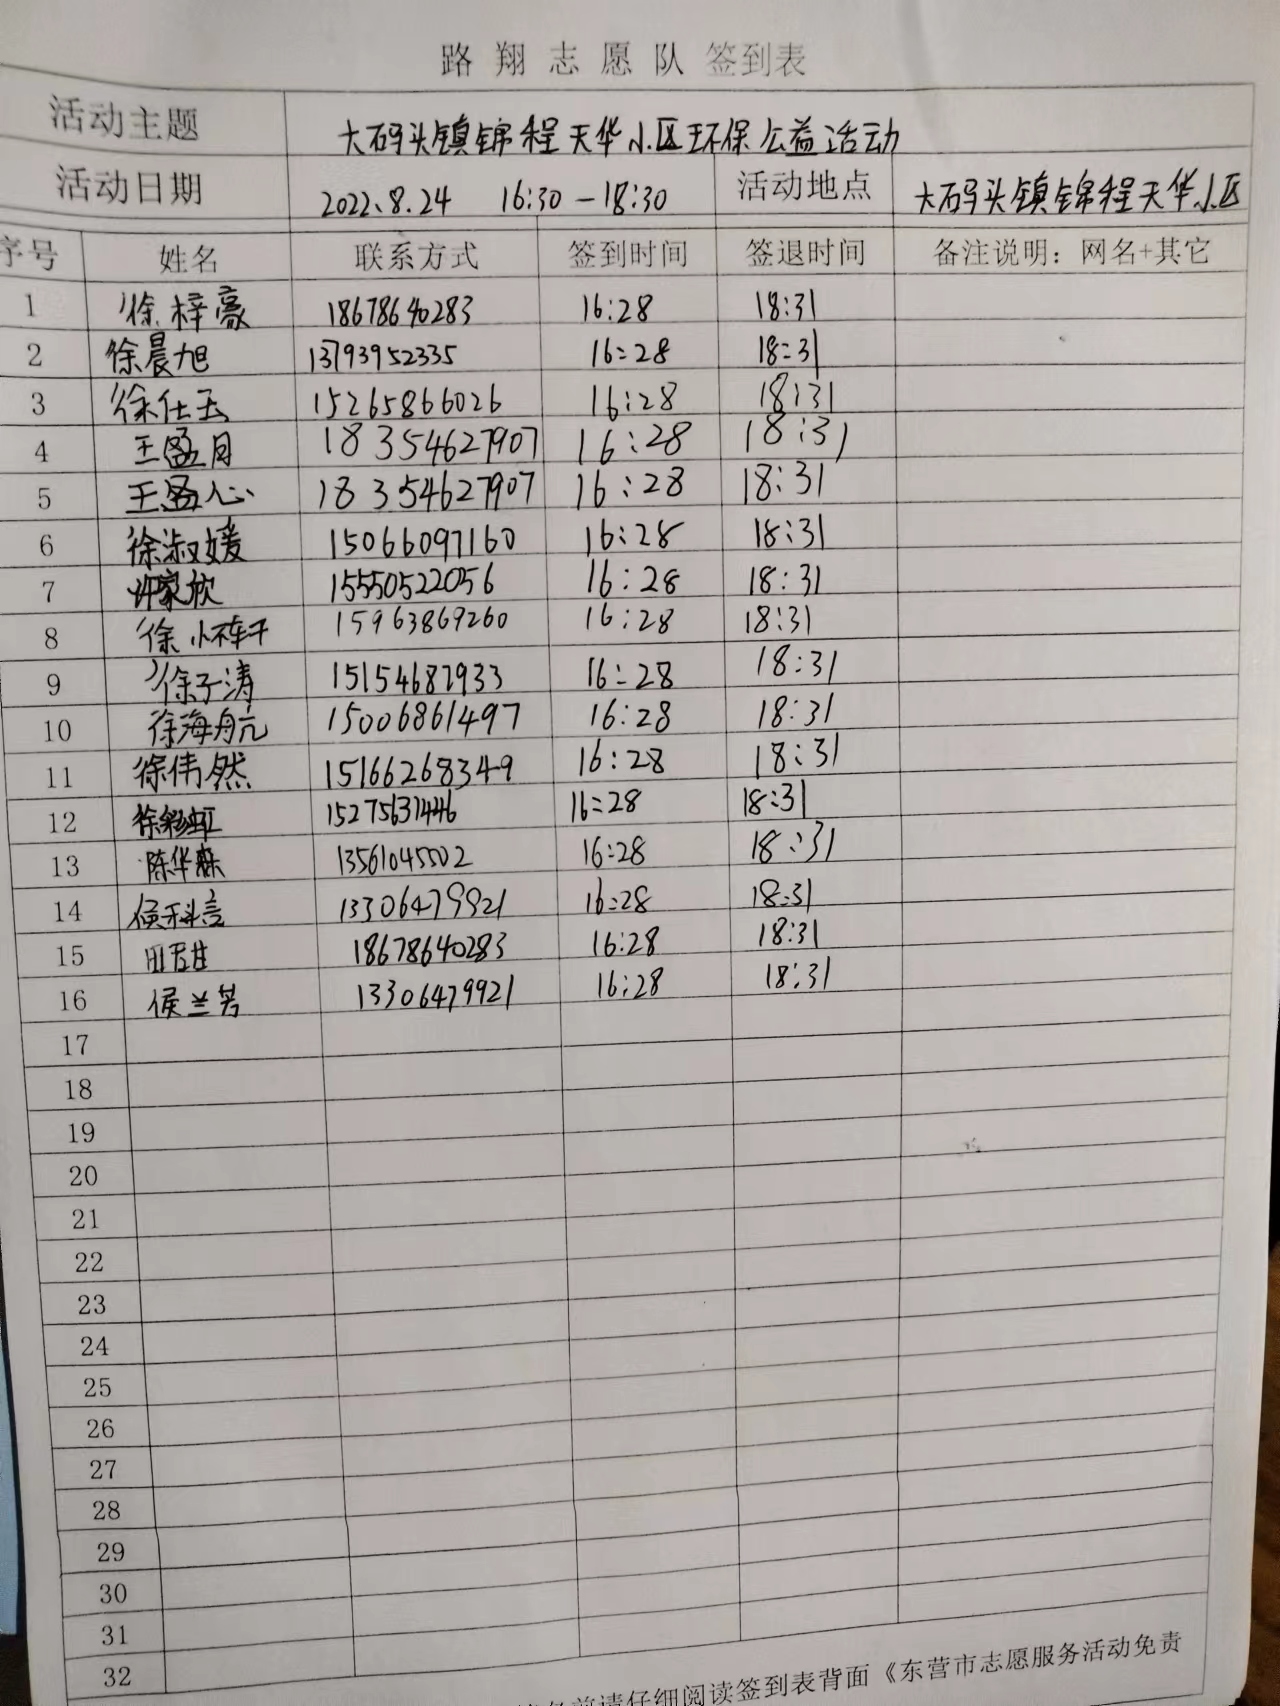 路翔志愿队 签到表
活动主题 大码头镇锦程天华小区环保公益活动
活动日期 2022.8.24 16:30-18:30 活动地点 大码头镇锦程天华小区
序号 姓名 联系方式 签到时间 签退时间 备注说明：网名+其它
1 徐梓豪 18678640283 16:28 18:31
2 徐晨旭 13793952335 16:28 18:31
3 徐仕玉 15265866026 16:28 18:31
4 王盈月 18354627907 16:28 18:31
5 王盈心 18354627907 16:28 18:31
6 徐淑媛 15066097160 16:28 18:31
7 许家欣 15550522056 16:28 18:31
8 徐小轩 15963869260 16:28 18:31
9 徐子涛 15154687933 16:28 18:31
10 徐海航 15006861497 16:28 18:31
11 徐伟然 15166268349 16:28 18:31
12 徐彩虹 15275631446 16:28 18:31
13 陈华 13561045502 16:28 18:31
14 侯科言 13306479921 16:28 18:31
15 18678640283 16:28 18:31
16 侯兰芳 13306479921 16:28 18:31
17
18
19
20
21
22
23
24
25
26
27
28
29
30
31
32
前请仔细阅读签到表背面《东营市志愿服务活动免责